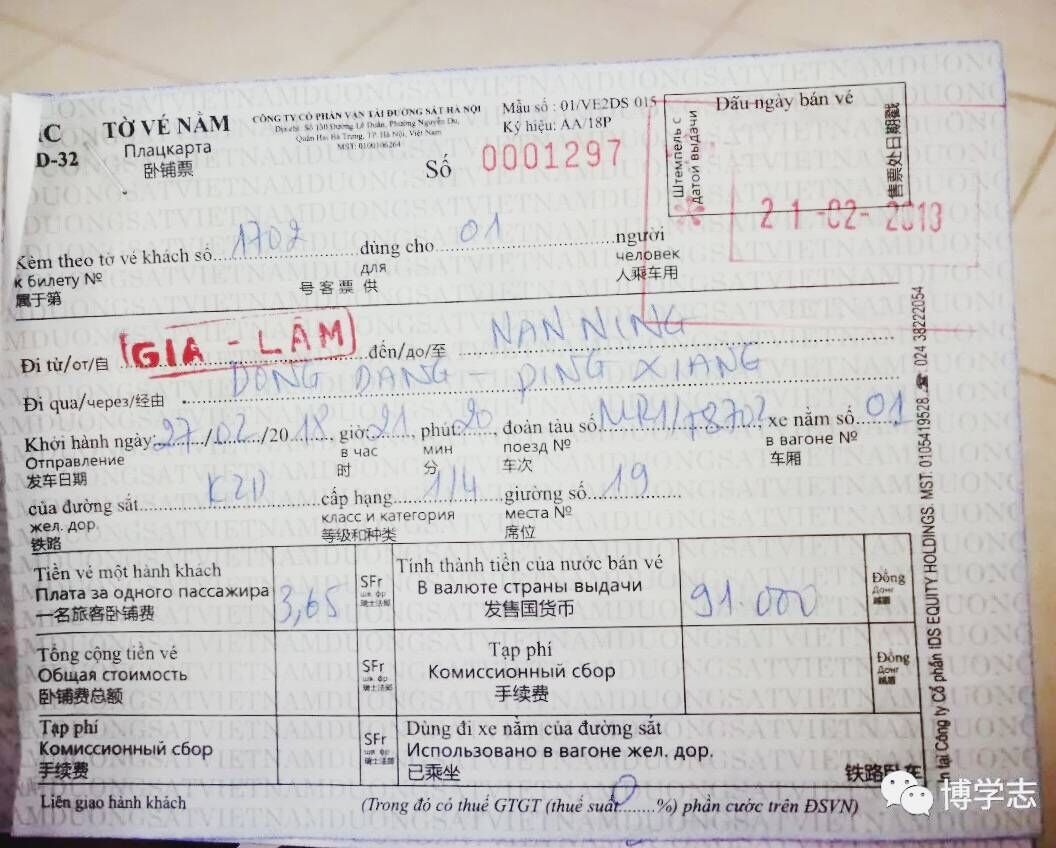 D-32
TỜ VÉ NẰM
Плацкарта
卧铺票
CÔNG TY CỔ PHẦN VẬN TẢI ĐƯỜNG SẮT HÀ NỘI
Địa chỉ: Số 130 Đường Lê Duẩn, Phường Nguyễn Du,
Quận Hai Bà Trưng, TP. Hà Nội, Việt Nam
MST: 0100106264
Mẫu số : 01/VE2DS 015
Ký hiệu: AA/18P
Số 0001297
Dấu ngày bán vé
Штемпель с
датой выдачи
售票处日期戳
21-02-2018
Kèm theo tờ vé khách số 1702 dùng cho 01 người
к билету № для человек
属于第 号客票 供 人乘车用
Đi từ/от/自 GIA - LÂM đến/до/至 NAN NING
Đi qua/через/经由 DONG DANG - PING XIANG
Khởi hành ngày 27/02/2018, giờ 21, phút 20, đoàn tàu số MR1/78702, xe nằm số 01
Отправление в час мин поезд № в вагоне №
发车日期 时 分 车次 车厢
của đường sắt KZD cấp hạng 1/4 giường số 19
жел. дор. класс и категория места №
铁路 等级和种类 席位
Tiền vé một hành khách
Плата за одного пассажира
一名旅客卧铺费
3,65
SFr
шв. фр
瑞士法郎
Tính thành tiền của nước bán vé
В валюте страны выдачи
发售国货币
91.000
Đồng
Донг
越盾
Tổng cộng tiền vé
Общая стоимость
卧铺费总额
SFr
шв. фр
瑞士法郎
Tạp phí
Комиссионный сбор
手续费
Đồng
Донг
越盾
Tạp phí
Комиссионный сбор
手续费
SFr
шв. фр
瑞士法郎
Dùng đi xe nằm của đường sắt
Использовано в вагоне жел. дор.
已乘坐
铁路卧车
Liên giao hành khách
(Trong đó có thuế GTGT (thuế suất 0 %) phần cước trên ĐSVN)
In tại Công ty Cổ phần IDS EQUITY HOLDINGS. MST 0105419528 ☎ 024 38222054
博学志